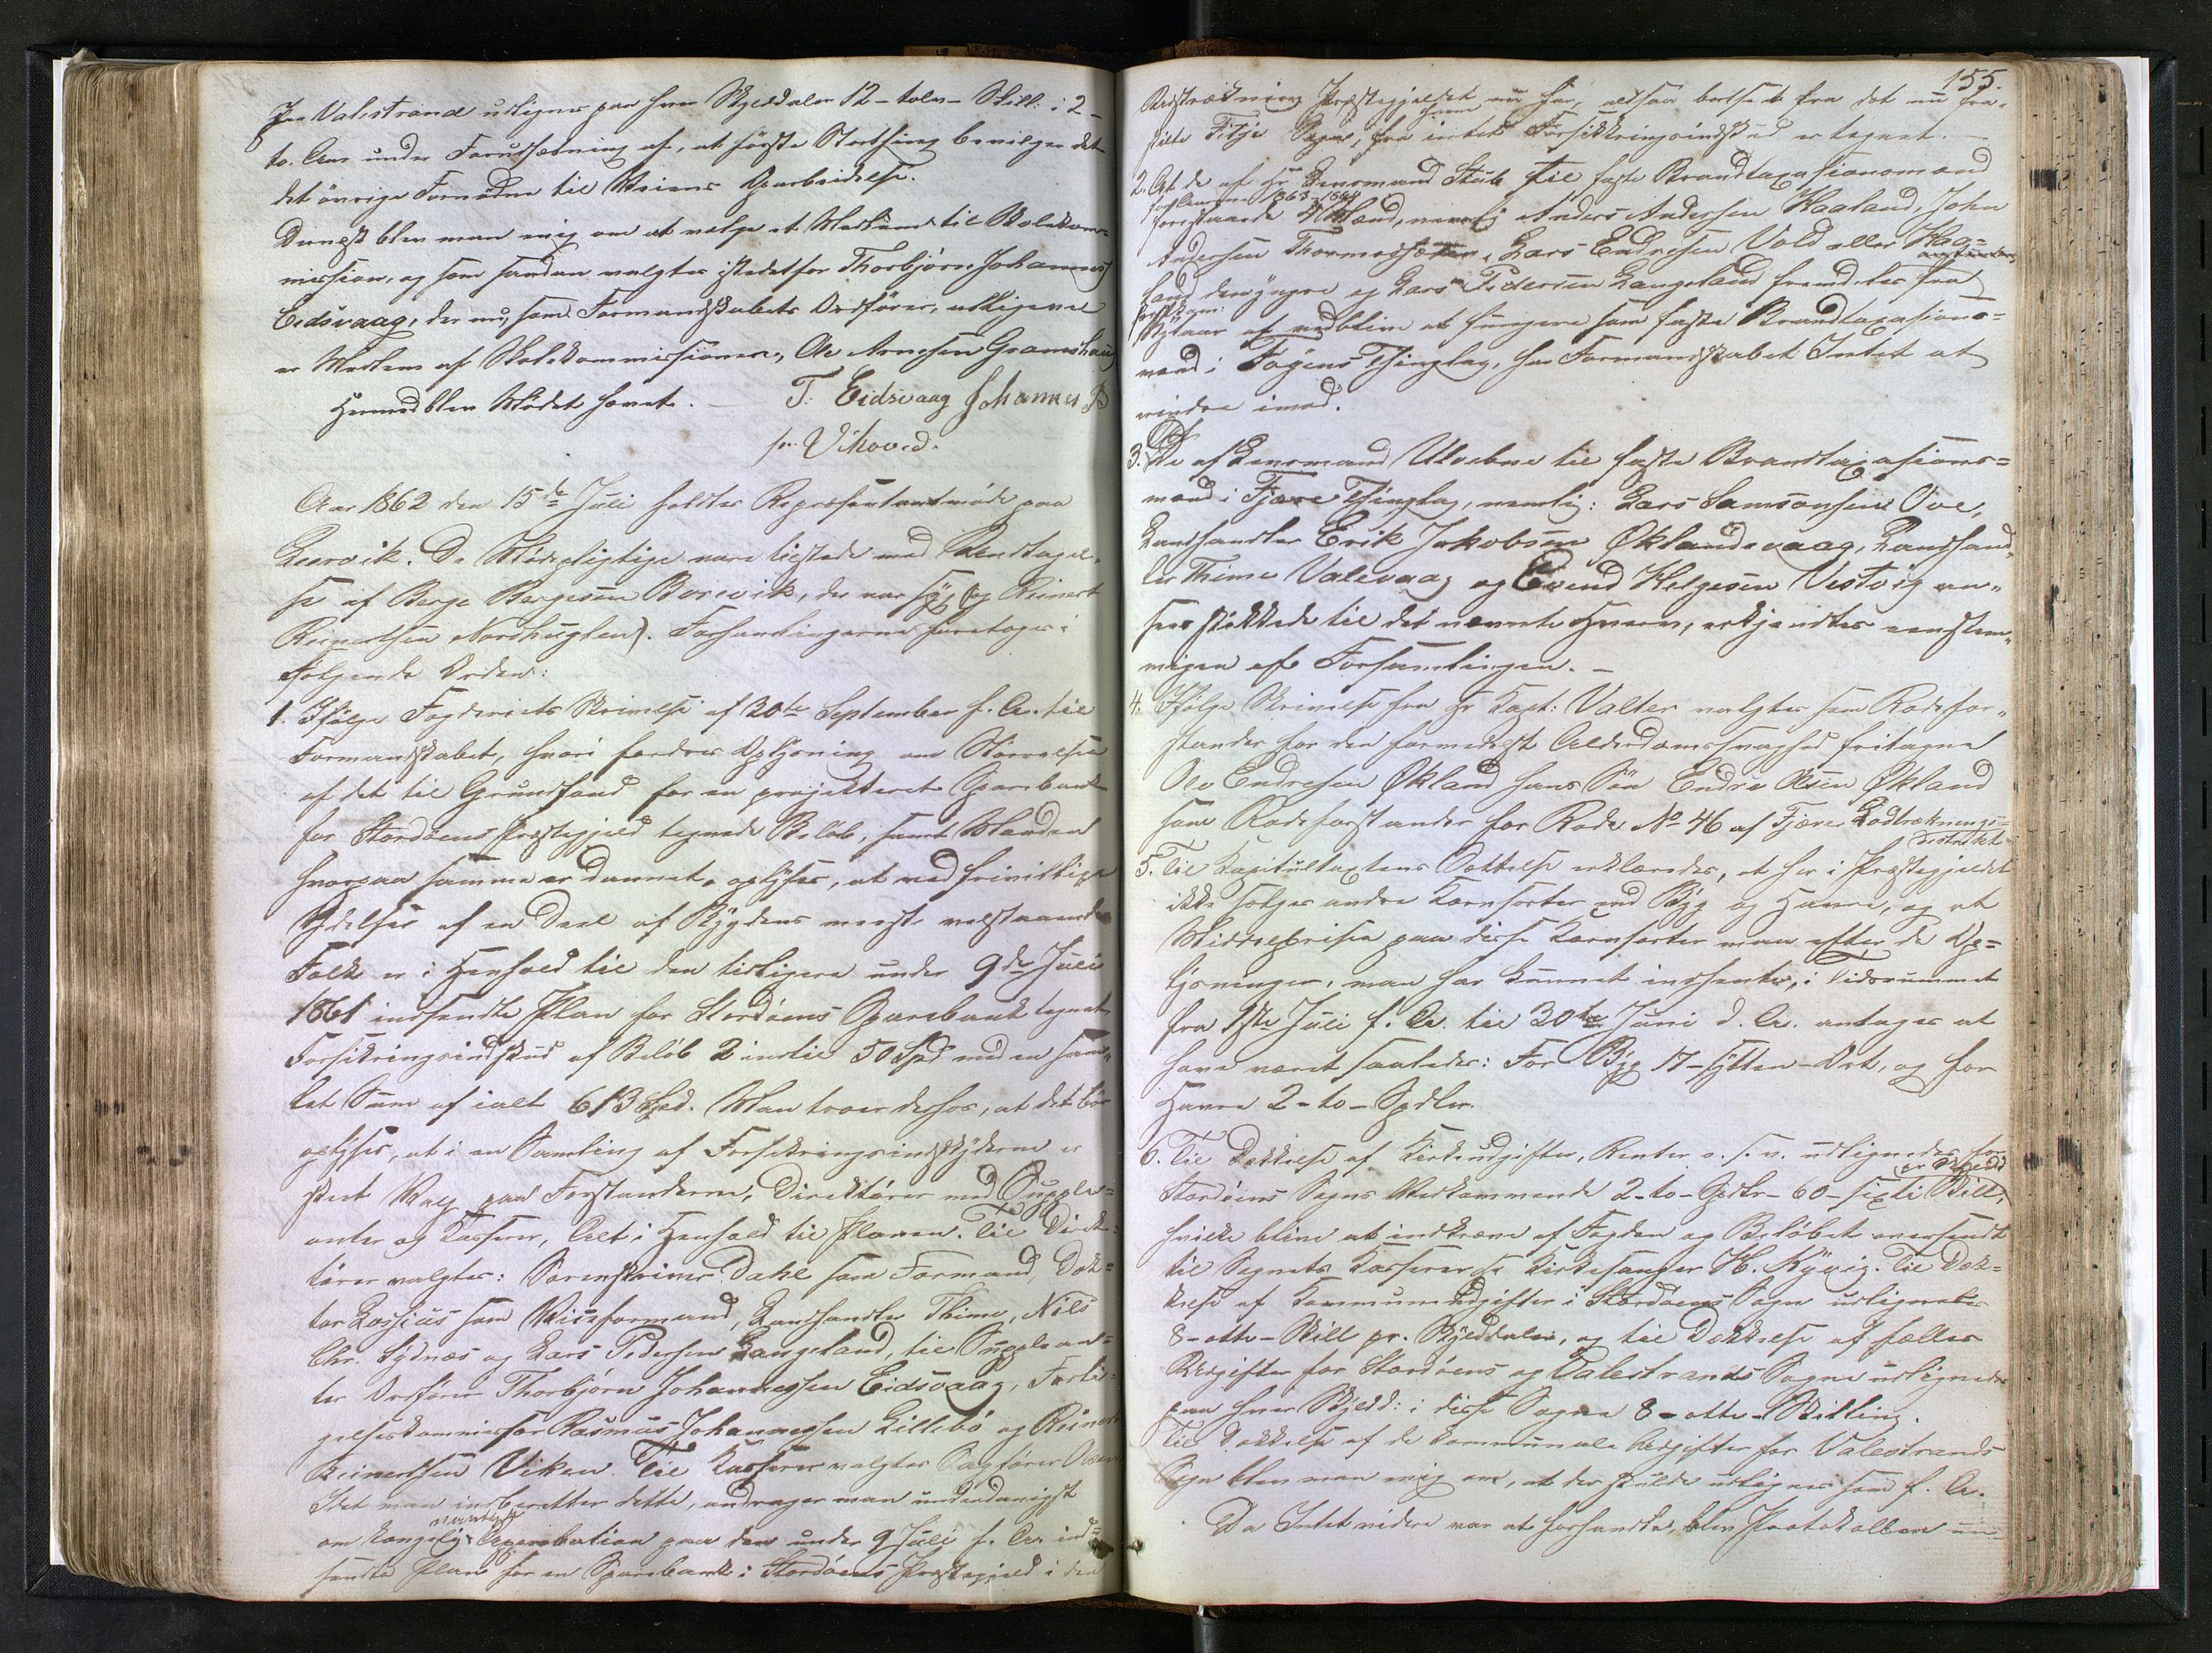 For Valestrand udlignes paa hver Skylddaler 12 - tolv - Skill: i 2 -
to. Aar under Forudsætning af, at förste Storthing bevilger det
det övrige Fornödne til Veiens Oparbeidelse.
Dernæst blev man enig om at vælge et Medlem til Skolekom-
mission, og som saadan valgtes istedetfor Thorbjörn Johannes
Eidsvaag, der nu, som Formandskabets Ordförer, alligevel
er Medlem af Skolekommissionen, Ole Arnesen Gramshaug
Hermed blev Mödet hævet. — T. Eidsvaag Johannes B
sen Vihoved.
Aar 1862 den 15de Juli holdtes Repræsentantmöde paa
Leervik. De Mödepligtige vare tilstede med Undtagel-
se af Berge Bergesen Borevik, der var syg og Reinert
Reinertsen Nordhuglen). Forhandlingerne foretoges i
følgende Orden:
1. Ifölge Fogderiets Skrivelse af 20de September f. A. til
Formandskabet, hvori fordres Oplysning om Störrelsen
af det til Grundfond for en projekteret Sparebank
for Stordöens Præstegjeld tegnede Belöb, samt Maaden
hvorpaa samme er dannet, oplyses, at ved frivillige
Ydelser af en Deel af Bygdens meest velstaaende
Folk er i Henhold til den tidligere under 9de Juli
1861 indsendte Plan for Stordöens Sparebank tegnet
Forsikringsindskud af Belöb 2 indtil 50 Spd med en sam-
let Sum af ialt 613 Spd. Man troer derhos, at det bör
oplyses, at i en Samling af Forsikringsindskyderne er
skeet Valg paa Forstanderne, Direktörer med Supple-
anter og Kasserer, Alt i Henhold til Planen. Til Direk-
törer valgtes: Sorenskriver Dahl som Formand, Dok-
tor Lossius som Viceformand, Landhandler Thime, Nils
Chr. Sydnæs og Lars Pedersen Langeland, til Supplean-
ter Ordförer Thorbjörn Johannessen Eidsvaag, Forli-
gelseskommissær Rasmus Johannessen Lillebö og Reinert
Reinertsen Viken. Til Kasserer valgtes Sagförer
Idet man indberetter dette, andrager man underdanigst
om kongelig Approbation paa den under 9 Juli f. A. ind-
sendte Plan for en Sparebank i Stordöens Præstegjeld i den
155.
Udstrækning Præstegjeldet nu har, altsaa bortseet fra det nu fra-
skilte Fitje Sogn, fra hvem intet Forsikkringsindskud er tegnet. —
2. At de af Hr Lensmand Stub til faste Brandtaxationsmænd
for Aarene 1863-1864
foreslaaede 4 Mænd, nemlig Anders Andersen Haaland, John
Andersen Thormodsæter, Lars Endresen Vold eller Haa-
land den yngre og Lars Pedersen Langeland fremdeles fra
Nytaar at vedblive at fungere som faste Brandtaxations-
mænd i Föyens Thinglag, har Formandskabet Intet at
erindre imod.
3. At De af Lensmand Ulvebne til faste Brandtaxasions-
mænd i Fjære Thinglag, nemlig: Lars Samsonsen Ove,
Landhandler Erik Jakobsen Øklandsvaag, Landhand-
ler Thime Valevaag og Eivend Helgesen Vestvig an-
sees skikkede til det nævnte Hverv, erkjendtes eenstem-
migen af Forsamlingen. —
4. Ifölge Skrivelse fra Hr Kapt: Valter valgtes som Rodefor-
stander for den formedelst Alderdomssvaghed fritagne
Ole Endresen Økland hans Sön Endre Olsen Økland
som Rodeforstander for Rode No 46 af Fjære Lodtræknings-
distrikt
5. Til Kapitulstaxtens Sættelse erklæredes, at her i Præstegjeldet
ikke sælges andre Kornsorter end Byg og Havre, og at
Middelprisen paa disse Kornsorter maa efter de Op-
lysninger, man har kunnet indhente, i Tidsrummet
fra 1ste Juli f. A. til 30te Juni d. A. antages at
have været saaledes: For Byg 17 - sytten - Ort, og for
Havre 2 - to - Spdlr.
6. Til Dækkelse af Kirkeudgifter, Renter o. s. v. udlignedes for
Stordöens Sogns Vedkommende 2 - to - Spdlr - 60 - sexti Skill,
hvilke blive at indkræve af Fogden og Belöbet oversendt
til Sognets Kasserer Hr Kirkesanger H. Kyvig. Til Dæk-
kelse af Kommuneudgifter i Stordöens Sogn udlignedes
8 - otte - Skill pr. Skylddaler, og til Dækkelse af fælles
Udgifter for Stordöens og Valestrands Sogne udlignedes
paa hver Skyldd: i disse Sogne 8 - otte - Skilling.
Til Dækkelse af de kommunale Udgifter for Valestrands
Sogn blev man enig om, at der skulde udlignes som f. A.
Da Intet videre var at forhandle, blev Protokollen un-